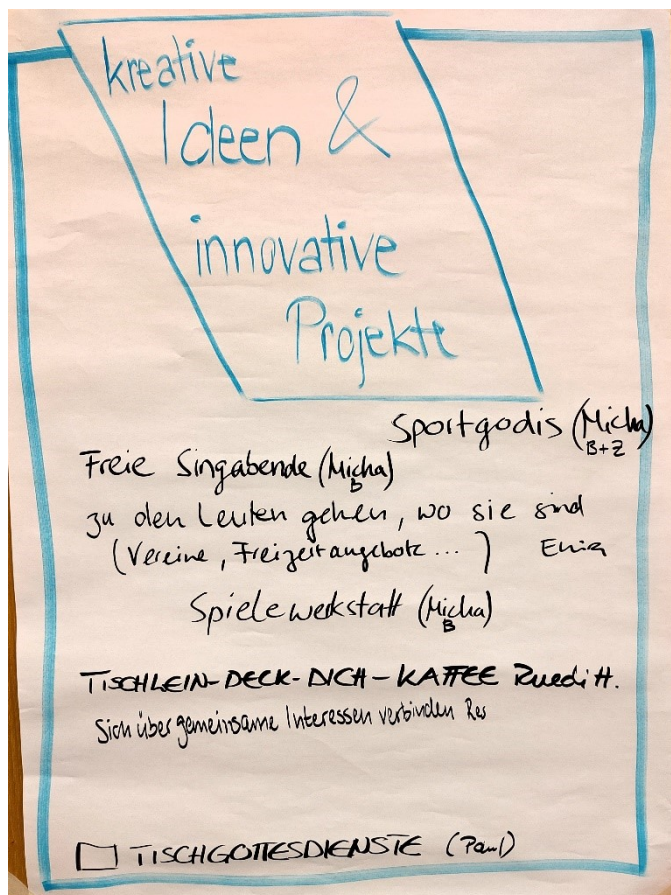 kreative
Ideen &
innovative
Projekte
Sportgodis (Micha)
B+Z
Freie Singabende (Micha)
B
zu den Leuten gehen, wo sie sind
(Vereine, Freizeitangebote ... )
Spielewerkstatt (Micha)
B
TISCHLEIN-DECK-DICH-KAFFEE Ruedi H.
Sich über gemeinsame Interessen verbinden Res
TISCHGOTTESDIENSTE (Paul)